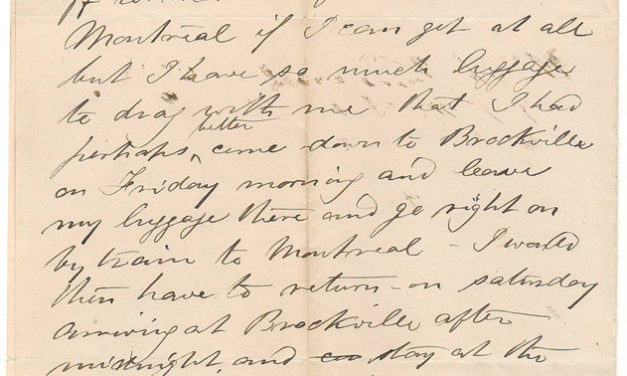 Montréal if I can get at all
but I have so much luggage
to drag with me that I had
better
perhaps, come down to Brockville
on Friday morning and leave
my luggage there and go right on
by train to Montreal - I would
then have to return - on saturday
arriving at Brockville after
midnight, and stay at the